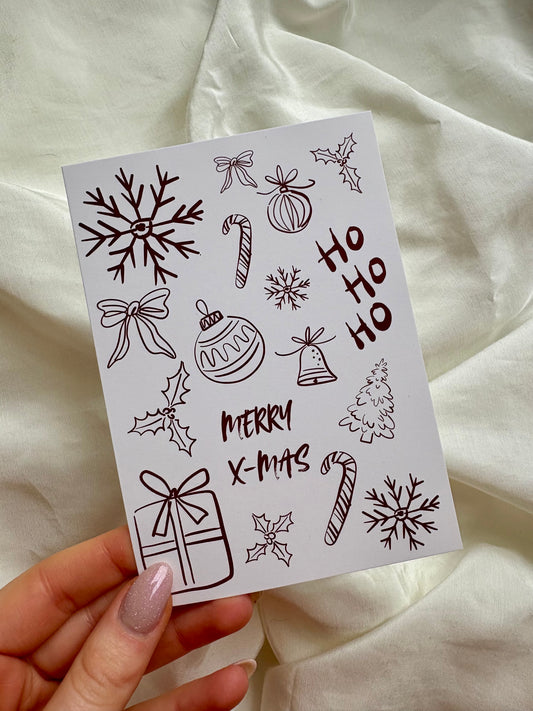 HO
HO
HO
MERRY
X-MAS